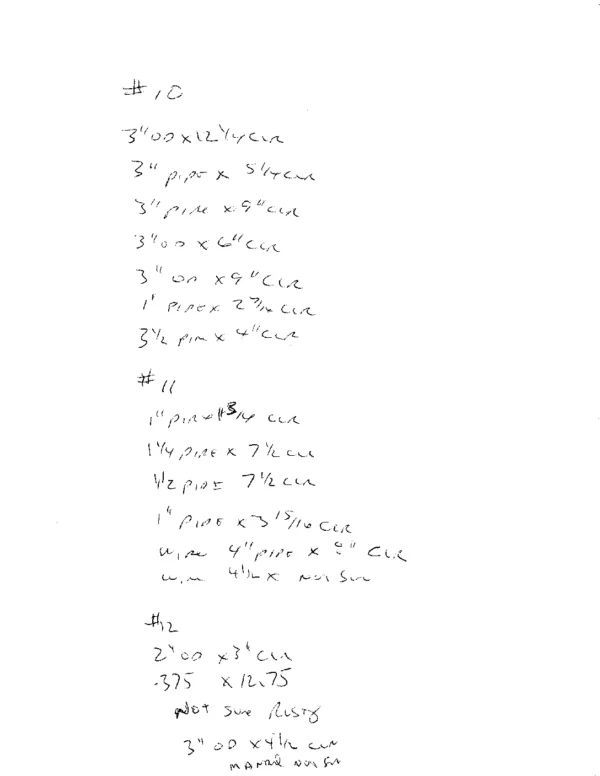 #10
3" OD x 12 1/4 CLR
3" PIPE x 5 1/4 CLR
3" PIPE x 9" CLR
3" OD x 6" CLR
3" OD x 9" CLR
1" PIPE x 2 3/16 CLR
3 1/2 PIPE x 4" CLR
#11
1" PIPE x 3/4 CLR
1 1/4 PIPE x 7 1/2 CLR
1 1/2 PIPE 7 1/2 CLR
1" PIPE x 3 15/16 CLR
4" PIPE x CLR
4 1/2 x NOT SURE
#12
2" OD x 3" CLR
.375 x 12.75
NOT SURE RUSTY
3" OD x 4 1/2 CLR
MANDREL NOT SURE